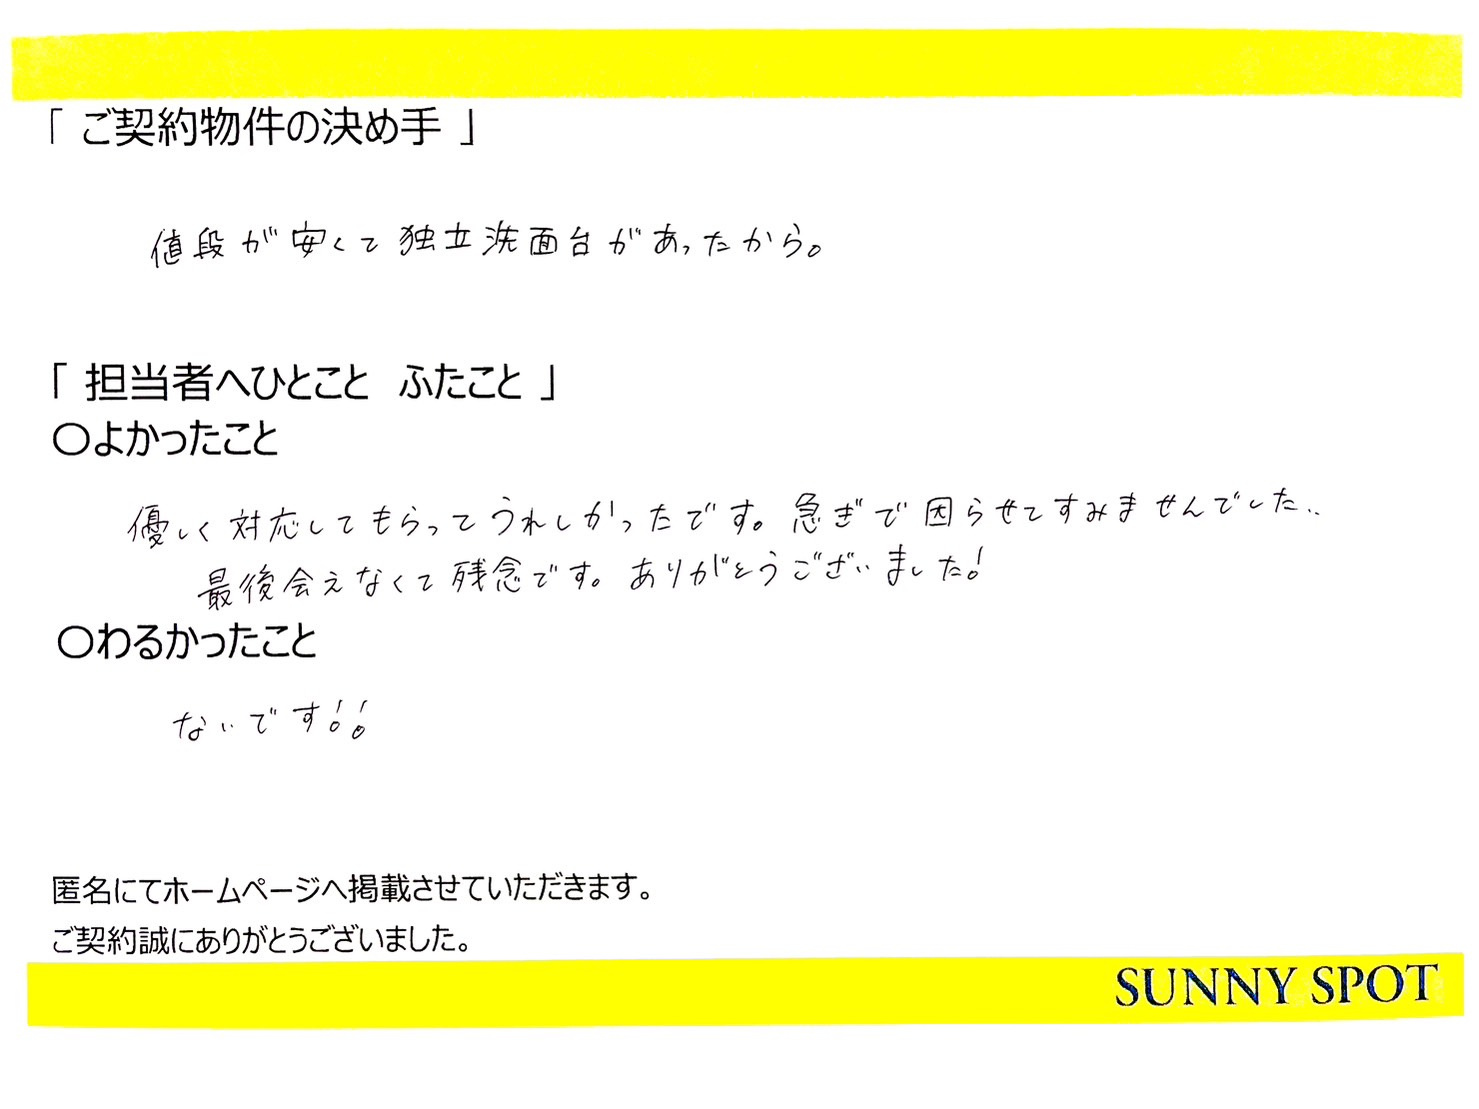 「 ご契約物件の決め手 」
値段が安くて独立洗面台があったから。
「 担当者へひとこと　ふたこと 」
〇よかったこと
優しく対応してもらってうれしかったです。急ぎで困らせてすみませんでした..
最後会えなくて残念です。ありがとうございました!
〇わるかったこと
ないです!!
匿名にてホームページへ掲載させていただきます。
ご契約誠にありがとうございました。
SUNNY SPOT